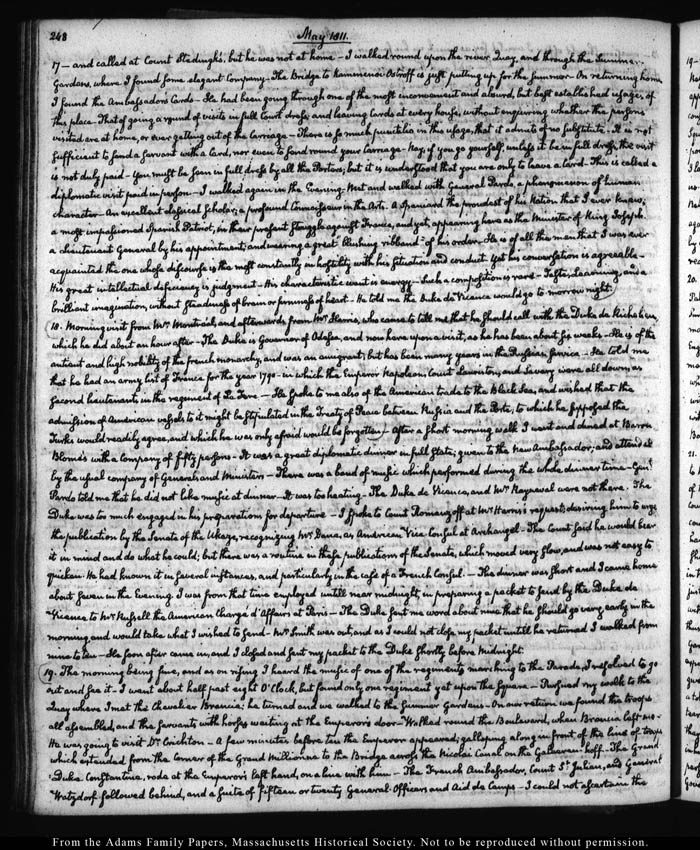 248
May 1811.
17 — and called at Count Stedingk's, but he was not at home — I walked round upon the river Quay, and through the Summer-
Gardens, where I found some elegant Company — The Bridge to Kammenoi Ostroff is just putting up for the Summer — On returning home,
I found the Ambassadors Cards — He had been going through one of the most inconvenient and absurd, but best established usages of
this place — That of going a round of visits in full Court dress, and leaving cards at every house, without enquiring whether the persons
visited are at home, or ever getting out of the Carriage — There is so much punctilio in this usage, that it admits of no substitute — It is not
sufficient to send a servant with a Card, nor even to send round your Carriage — Nay, if you go yourself, unless it be in full dress, the visit
is not duly paid — You must be seen in full dress by all the Porters; but it is understood that you are only to leave a Card — This is called a
diplomatic visit paid in person — I walked again in the Evening; Met and walked with General Pardo, a phenomenon of human
character — An excellent classical Scholar; a profound Connoisseur in the Arts. A Spaniard the proudest of his Nation that I ever knew;
a most impassioned Spanish Patriot, in their present struggle against France, and yet, appearing here as the Minister of King Joseph.
a Lieutenant General by his appointment; and wearing a great blushing ribband of his order. He is of all the men that I was ever
acquainted the one whose discourse is the most constantly in hostility with his situation and conduct. Yet his conversation is agreeable —
His great intellectual deficiency is judgment — His characteristic want is energy — Such a composition is rare — Taste, Learning, and a
brilliant imagination, without steadiness of brain or firmness of heart — He told me the Duke de Vicenza would go to-morrow night.
18. Morning visit from Mr Montreal, and afterwards from Mr Harris, who came to tell me that he should call with the Duke de Richelieu,
which he did about an hour after — The Duke is Governor of Odessa, and now here upon a visit, as he has been about six weeks — He is of the
antient and high nobility of the french monarchy, and was an emigrant; but has been many years in the Russian service — He told me
that he had an army list of France for the year 1790 — in which the Emperor Napoleon, Count Lauriston, and Savary were all down, as
second lieutenants in the regiment of La Fere — He spoke to me also of the American trade to the Black Sea, and wished that the
admission of American vessels to it might be stipulated in the Treaty of Peace between Russia and the Porte, to which he supposed the
Turks would readily agree, and which he was only afraid would be forgotten — After a short morning walk I went and dined at Baron
Blome's with a company of fifty persons — It was a great diplomatic dinner in full state; given to the New Ambassador; and attended
by the usual company of Generals and Ministers — There was a band of music which performed during the whole dinner time — Genl
Pardo told me that he did not like music at dinner — It was too heating — The Duke de Vicenza, and Mr Rayneval were not there. The
Duke was too much engaged in his preparations for departure — I spoke to Count Romanzoff at Mr Harris's request; desiring him to urge
the publication by the Senate of the Ukaze, recognizing Mr Dana, as American Vice-Consul at Archangel — The Count said he would bear
it in mind and do what he could; but there was a routine in these publications of the Senate, which moved very slow, and was not easy to
quicken. He had known it in several instances, and particularly in the case of a French Consul — The dinner was short and I came home
about seven in the Evening. I was from that time employed untill near midnight, in preparing a packet to send by the Duke de
Vicenza to Mr Russell the American Chargé d'Affaires at Paris — The Duke sent me word about nine that he should go very early in the
morning, and would take what I wished to send — Mr Smith was out, and as I could not close my packet untill he returned I walked from
nine to ten — He soon after came in, and I closed and sent my packet to the Duke shortly before Midnight.
19. The morning being fine, and as on rising I heard the music of one of the regiments marching to the Parade, I resolved to go
out and see it — I went about half past eight O'Clock, but found only one regiment yet upon the Square — Pursued my walk to the
Quay where I met the Chevalier Brancia; he turned and we walked to the Summer Gardens — On our return we found the troops
all assembled, and the servants with horses waiting at the Emperor's door — Walked round the Boulevard, when Brancia left me —
He was going to visit Dr Crichton — A few minutes before ten the Emperor appeared; galloping along in front of the lines of troops
which extended from the Corner of the Grand Millionne to the Bridge across the Nicolai Canal on the Galleeran-hoff — The Grand
Duke Constantine, rode at the Emperor's left hand, on a line with him — The French Ambassador, Count St Julien, and General
Watzdorf followed behind, and a suite of fifteen or twenty General Officers and Aid de Camps — I could not ascertain the
From the Adams Family Papers, Massachusetts Historical Society. Not to be reproduced without permission.